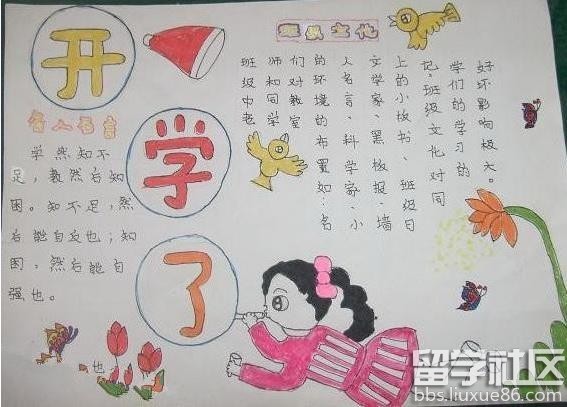 开
学
了
名人名言
学然知不
足，教然后知
困。知不足，然
后能自反也；知
困，然后能自
强也。
也
班级文化
班级中老
师和同学
们对教室
的环境的布置如：名
人名言、科学家、小
文学家、黑板报、墙
上的小板书、班级日
记。班级文化对同
学们的学习的
好坏影响极大。
留学社区
bbs.liuxue86.com